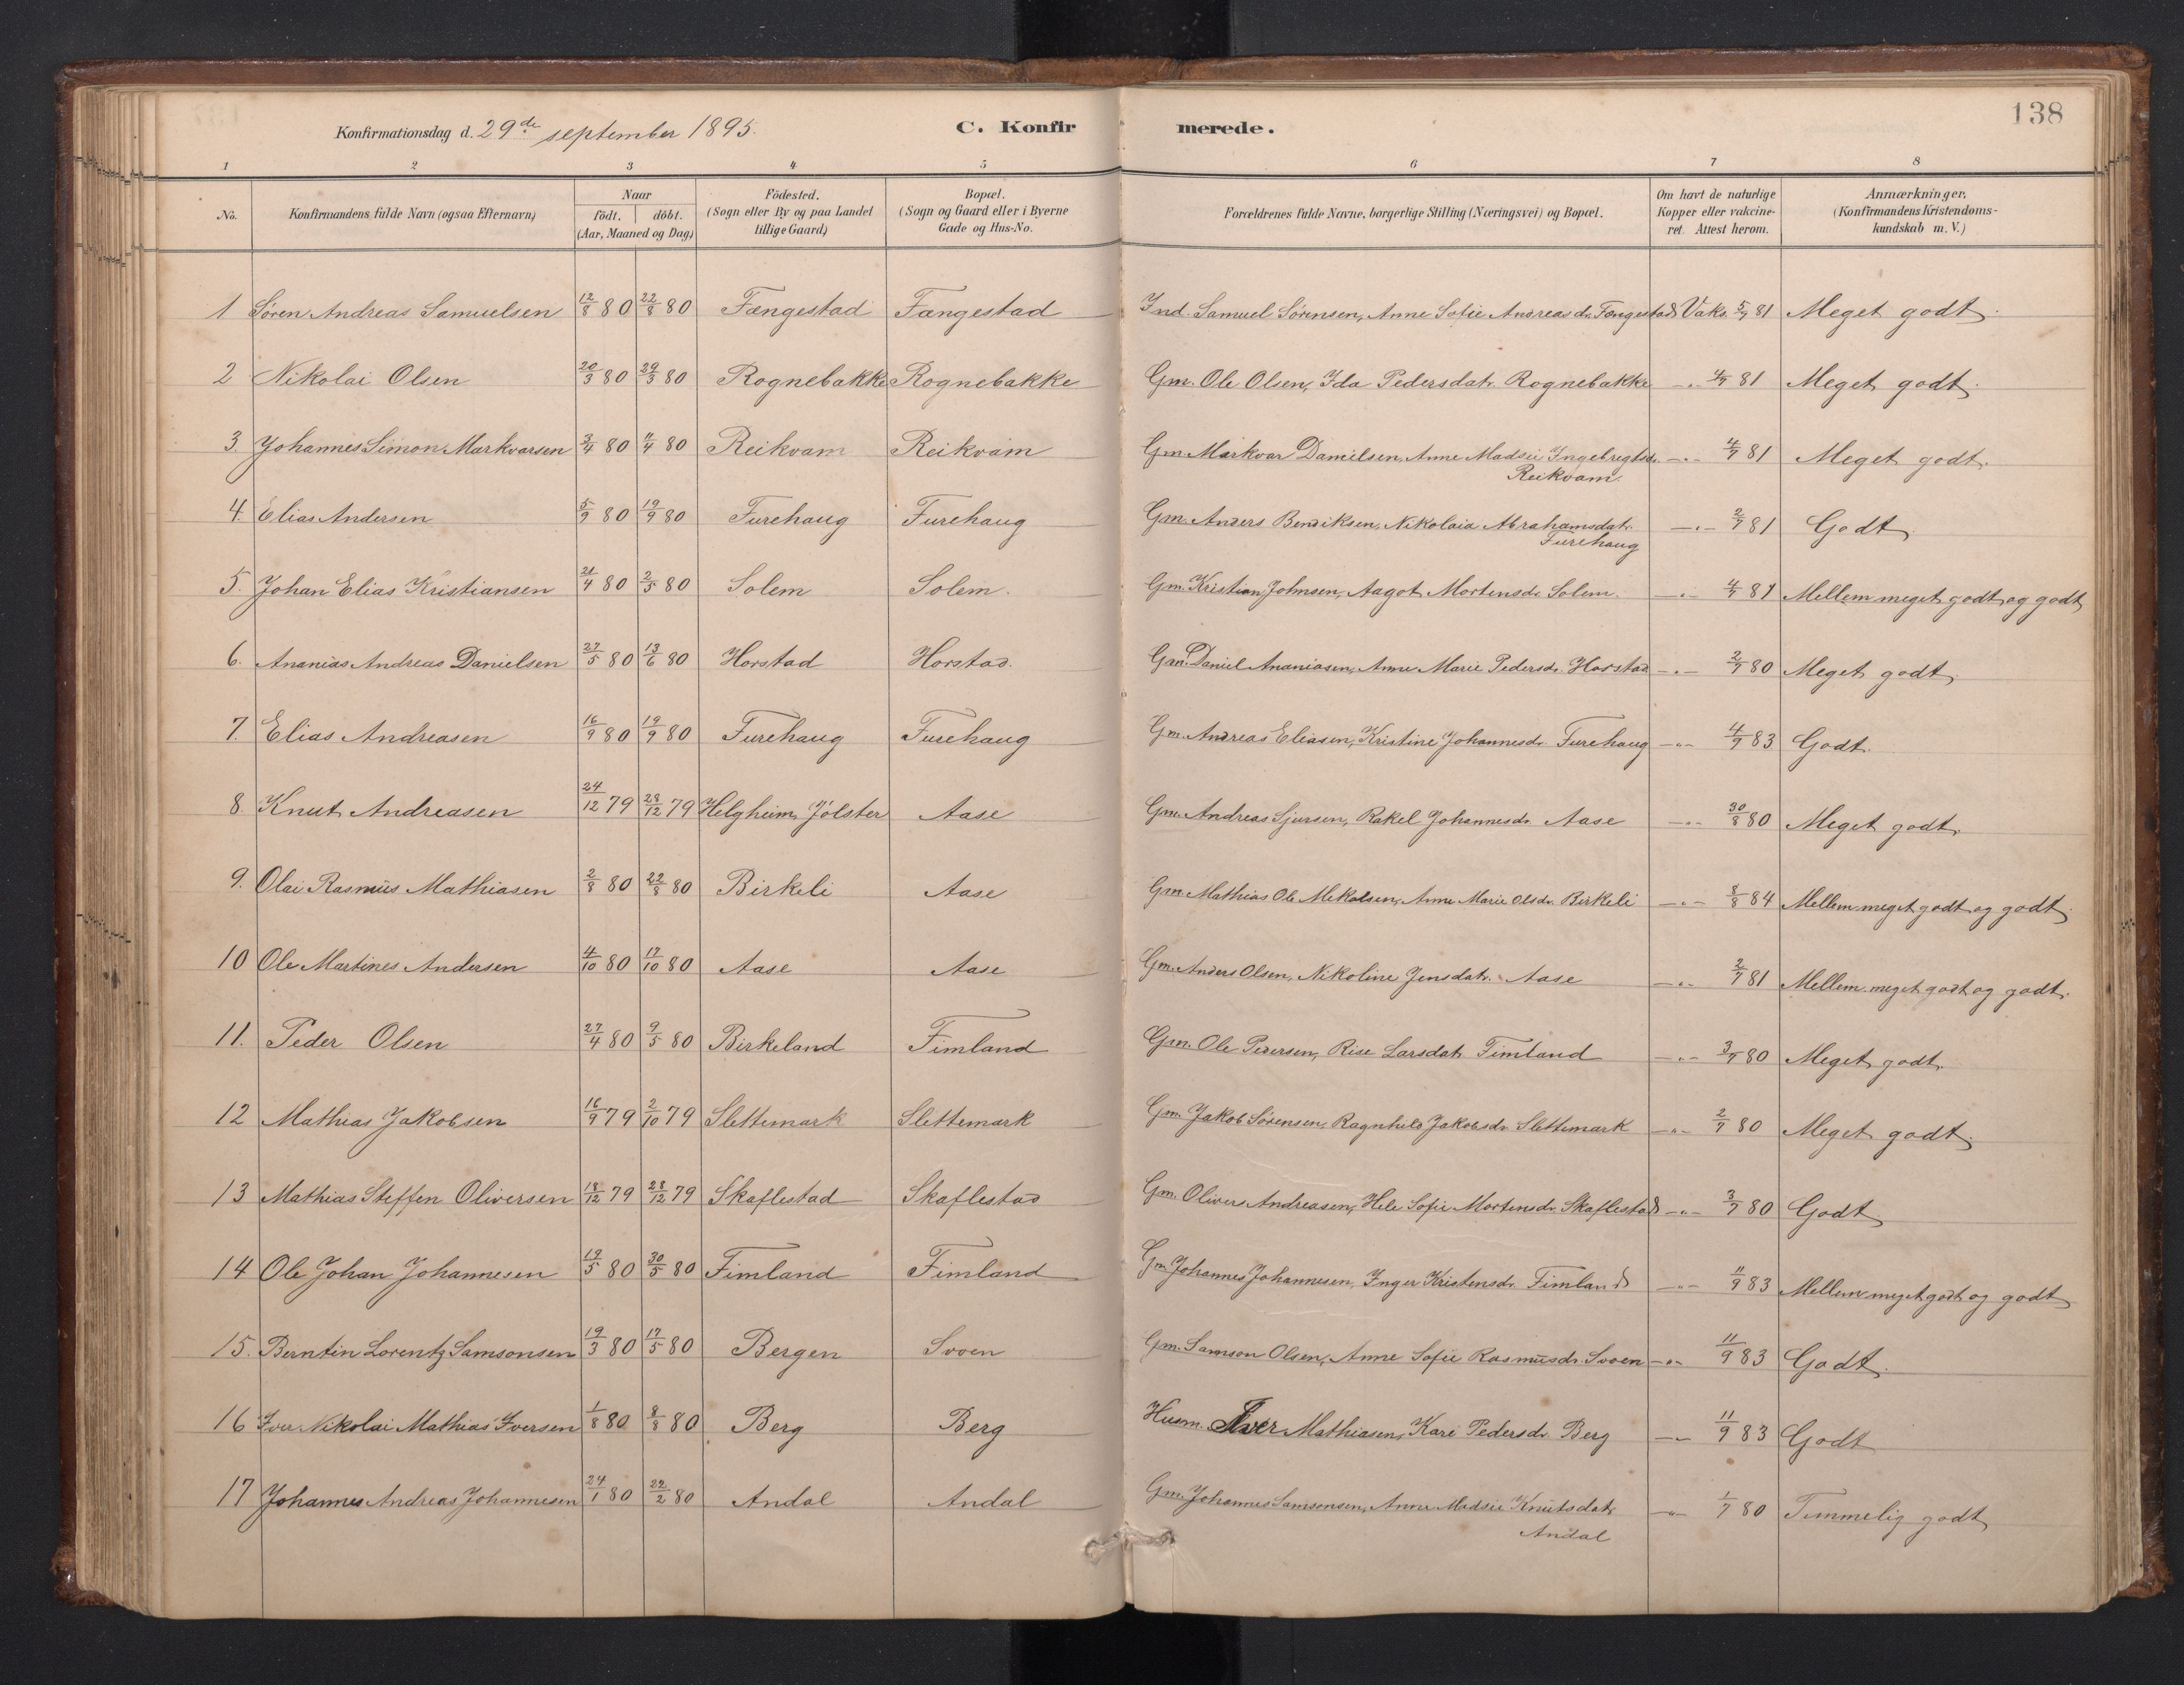 138
Konfirmationsdag d. 29de september 1895. C. Konfirmerede.
1 2 3 4 5 6 7 8
No. Konfirmandens fulde Navn (ogsaa Efternavn) Naar født. døbt. (Aar, Maaned og Dag) Fødested. (Sogn eller By og paa Landet tillige Gaard) Bopæl. (Sogn og Gaard eller i Byerne Gade og Hus-No. Forældrenes fulde Navne, borgerlige Stilling (Næringsvei) og Bopæl. Om havt de naturlige Kopper eller vakcineret. Attest herom. Anmærkninger. (Konfirmandens Kristendomskundskab m. V.)
1 Søren Andreas Samuelsen 12/8 80 22/8 80 Fængestad Fængestad Ind. Samuel Sørensen, Anne Sofie Andreasdr. Fængestad Vaks. 5/7 81 Meget godt.
2 Nikolai Olsen 20/3 80 29/3 80 Rognebakke Rognebakke Gm. Ole Olsen, Ida Pedersdatr. Rognebakke -"- 4/7 81 Meget godt.
3. Johannes Simon Markvarsen 3/4 80 11/4 80 Reikvam Reikvam Gm. Markvar Danielsen, Anne Madsie Ingebregtsdr. -"- 4/7 81 Meget godt.
Reikvam.
4. Elias Andersen 5/9 80 19/9 80 Furehaug Furehaug Gm. Anders Bendiksen, Nikolaia Abrahamsdatr. -"- 2/7 81 Godt.
Furehaug
5. Johan Elias Kristiansen 21/4 80 2/5 80 Solem Solem. Gm. Kristian Johnsen, Aagot Mortensdr. Solem. -"- 4/7 81 Mellem meget godt og godt
6. Ananias Andreas Danielsen 27/5 80 13/6 80 Horstad Horstad. Gm. Daniel Ananiasen, Anne Marie Pedersdr. Horstad -"- 2/7 80 Meget godt.
7. Elias Andreasen 16/9 80 19/9 80 Furehaug Furehaug Gm. Andreas Eliasen, Kristine Johannesdr. Furehaug -"- 4/9 83 Godt.
8. Knut Andreasen 24/12 79 28/12 79 Helgheim, Jølster Aase Gm. Andreas Sjursen, Rakel Johannesdr. Aase -"- 30/8 80 Meget godt.
9. Olai Rasmus Mathiasen 2/8 80 22/8 80 Birkeli Aase Gm. Mathias Ole Mikalsen, Anne Marie Olsdr. Birkeli -"- 8/8 84 Mellem meget godt og godt.
10 Ole Martines Andersen 4/10 80 17/10 80 Aase Aase Gm. Anders Olsen, Nikoline Jensdatr. Aase -"- 2/7 81 Mellem meget godt og godt.
11. Peder Olsen 27/4 80 9/5 80 Birkeland Fimland Gm. Ole Pedersen, Rise Larsdatr. Fimland -"- 3/7 80 Meget godt.
12 Mathias Jakobsen 16/9 79 2/10 79 Slettemark Slettemark Gm. Jakob Sørensen, Ragnhild Jakobsdr. Slettemark -"- 2/7 80 Meget godt.
13 Mathias Steffen Oliversen 18/12 79 28/12 79 Skaflestad Skaflestad Gm. Olivers Andreasen, Hele Sofie Mortensdr. Skaflestad -"- 3/7 80 Godt.
14 Ole Johan Johannesen 19/5 80 30/5 80 Fimland Fimland Gm. Johannes Johannesen, Inger Kristensdr. Fimland -"- 11/9 83 Mellem meget godt og godt
15. Berntin Lorentz Samsonsen 19/3 80 17/5 80 Bergen Svoen Gm. Samson Olsen, Anne Sofie Rasmusdr. Svoen -"- 11/9 83 Godt.
16 Iver Nikolai Mathias Iversen 1/8 80 8/8 80 Berg Berg Husm. Iver Mathiasen, Kari Pedersdr. Berg -"- 11/9 83 Godt
17 Johannes Andreas Johannesen 24/1 80 22/2 80 Andal Andal Gm. Johannes Samsonsen, Anne Madsie Knutsdatr. -"- 1/7 80 Temmelig godt
Andal